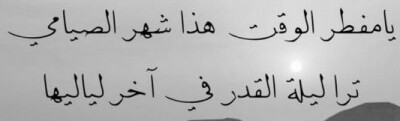 يامفطر الوقت هذا شهر الصيامي
ترا ليلة القدر في آخر لياليها